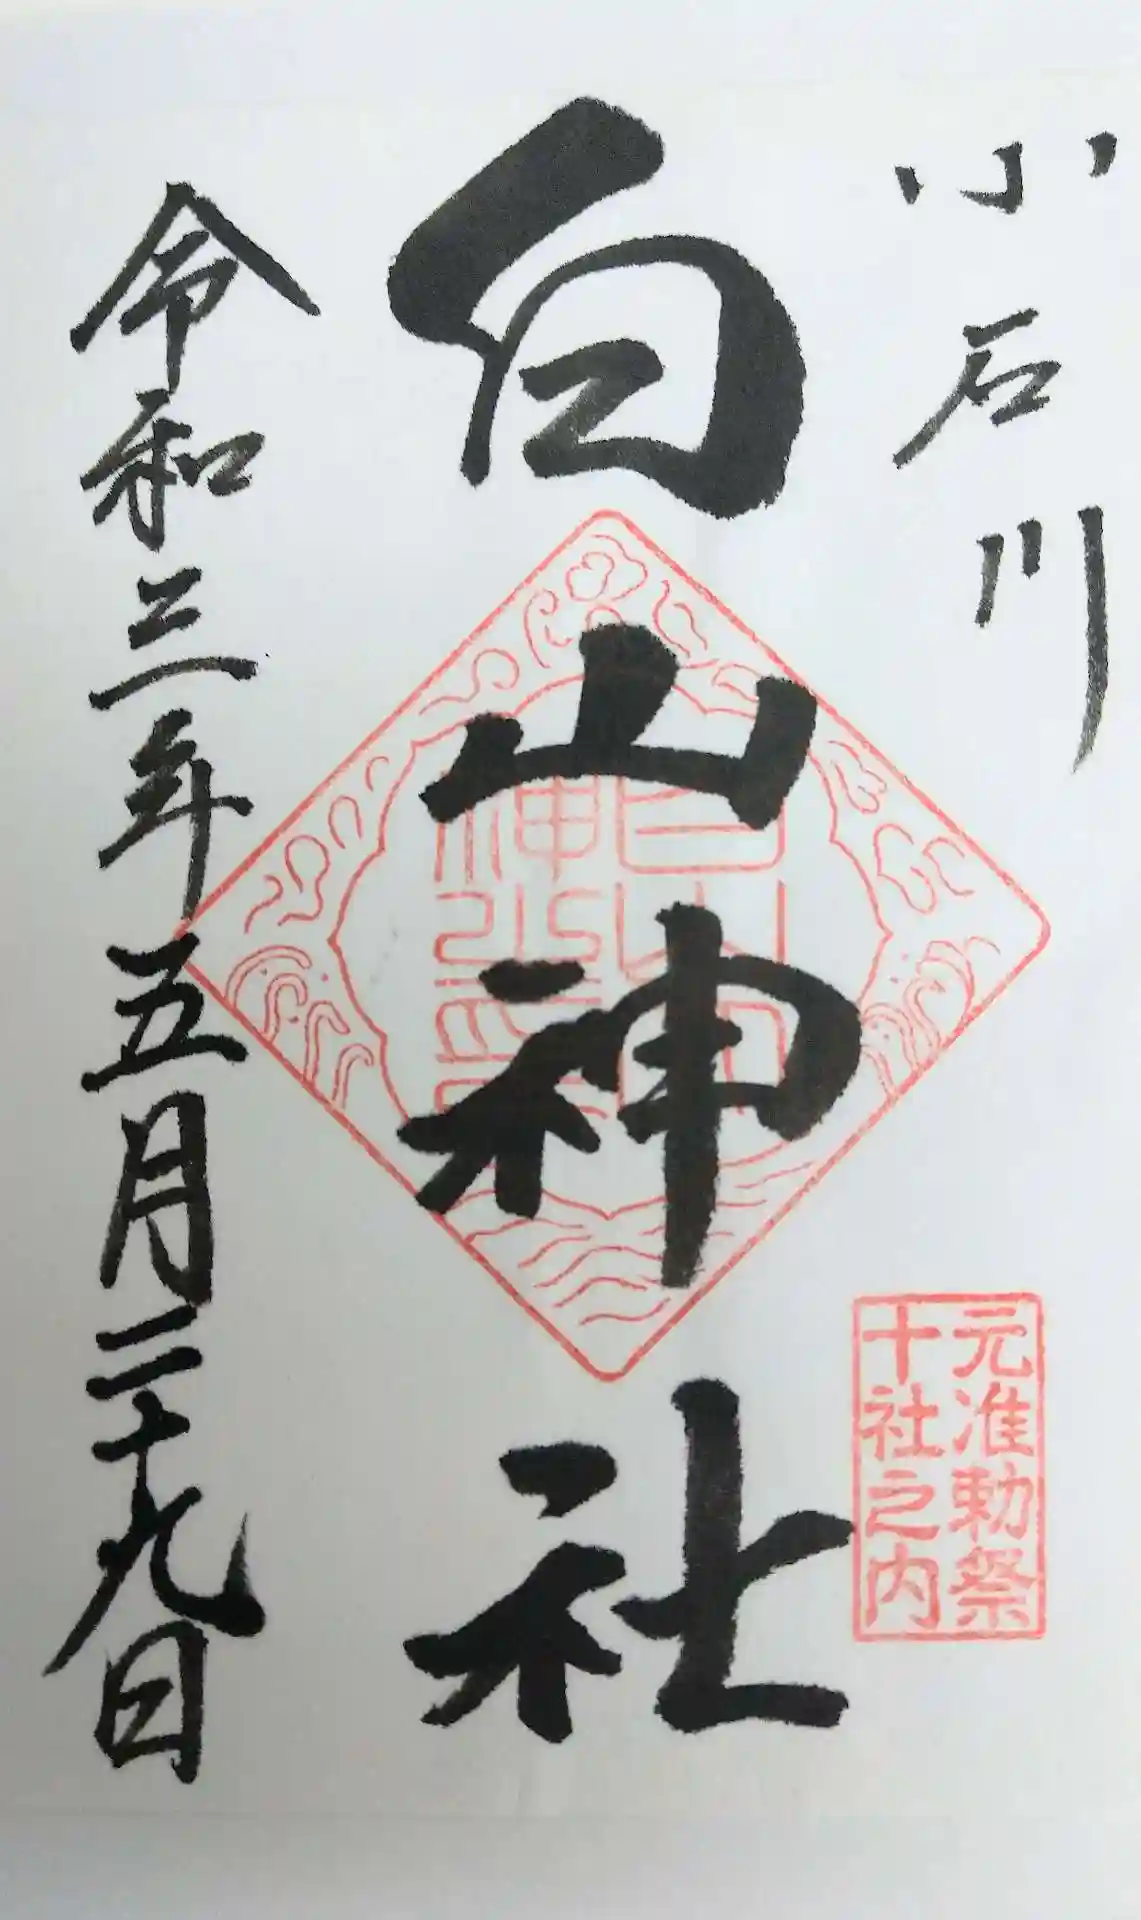 小石川
元准勅祭
十社之内
白山神社
令和三年五月二十九日